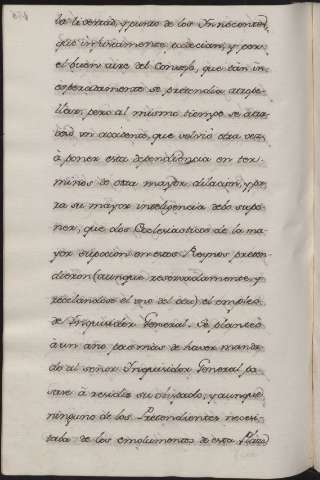 la livertad, y punto de los Innocentes,
que injustamente padecian, y por
el buen aire del Consejo, que tan in-
esperadamente se pretendia atrope-
llar, pero al mismo tiempo se atra-
besó un accidente, que volvió otra vez
à poner esta dependiencia en ter-
minos de otra mayor dilacion, y pa-
ra su mayor inteligencia debo supo-
ner, que dos Ecclesiasticos de la ma-
yor suposicion en estos Reynos preten-
dieron (aunque reservadamente, y
recelandose el uno del otro) el empleo
de Inquisidor General. Se planteó
à un año poco mas de haver manda-
do al señor Inquisidor General pa-
sase à residir su obispado, y aunque
ninguno de los Pretendientes necesi-
taba de los emolumentos de esta Plaza